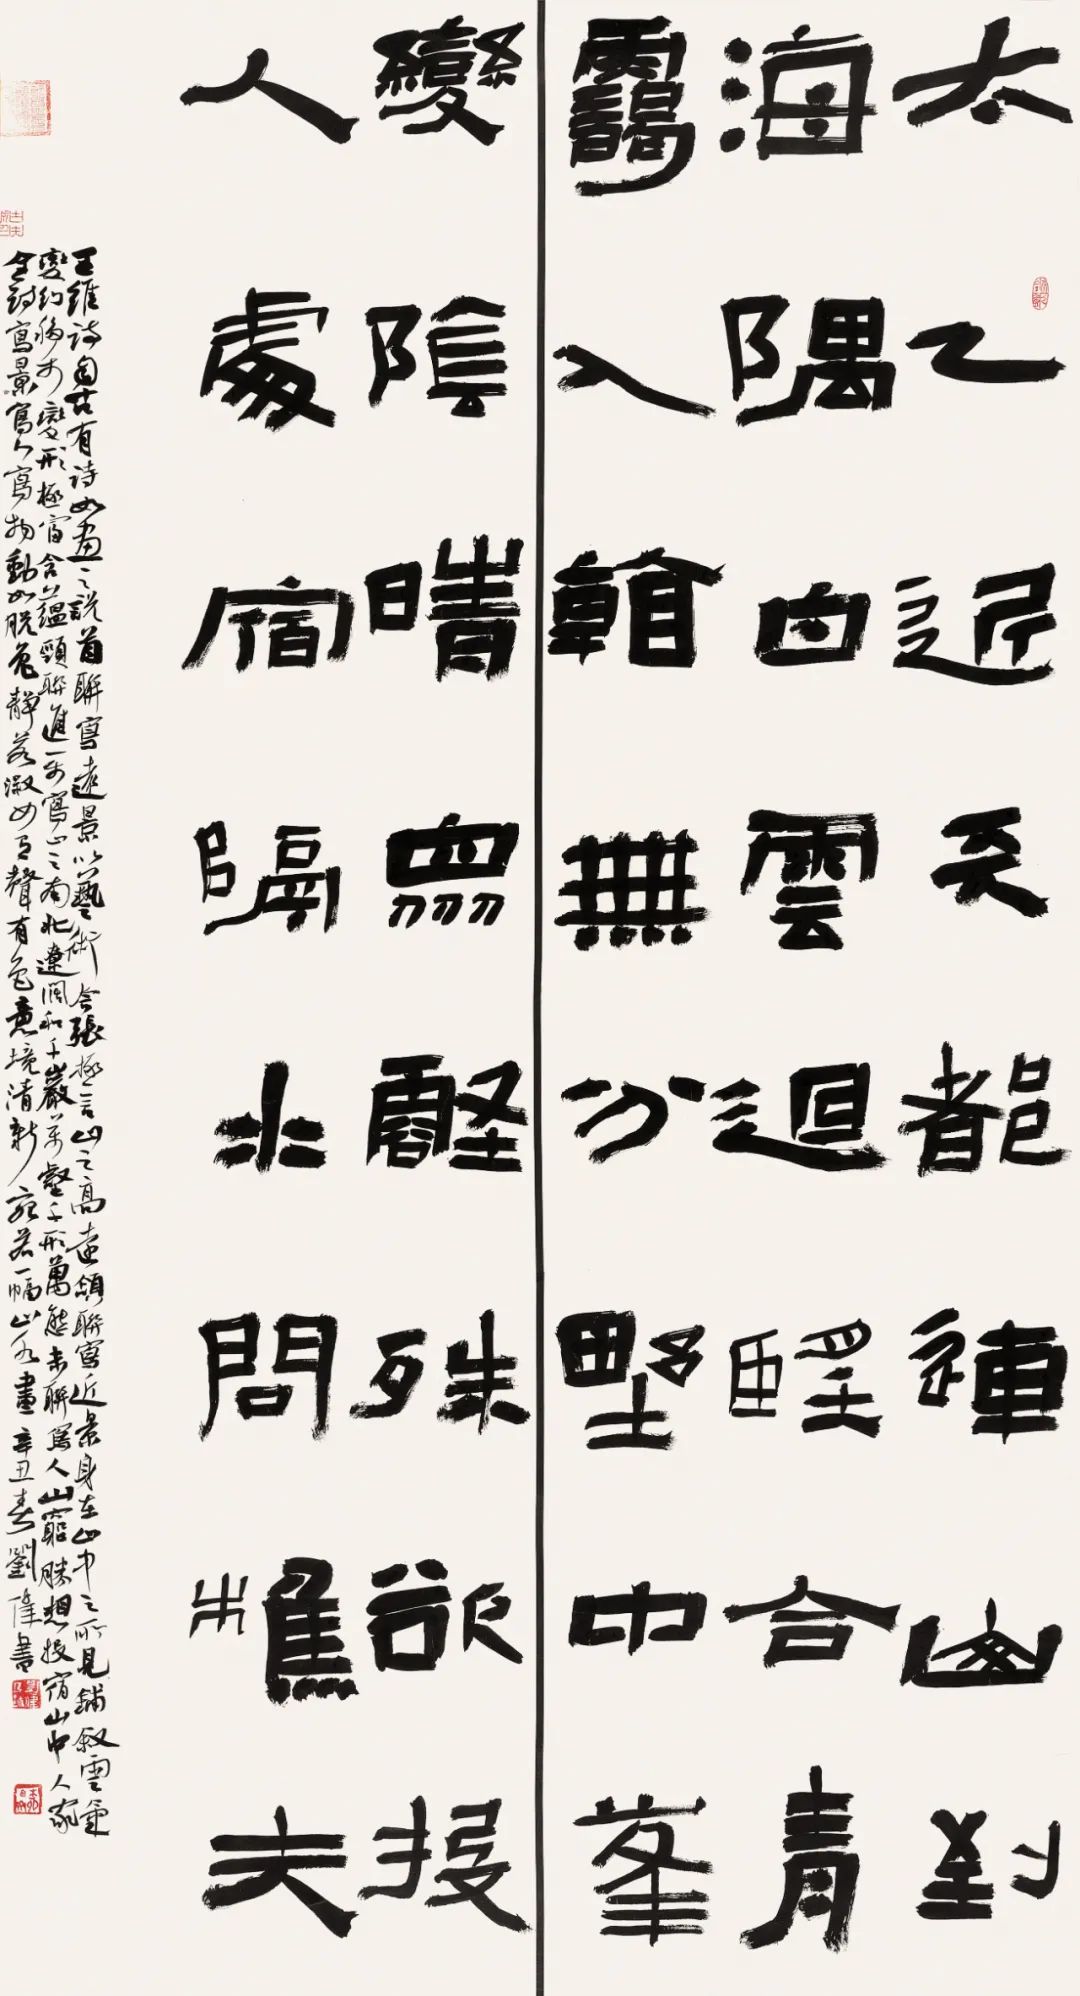 太乙近天都連山到
海隅白雲迴望合青
靄入看無分野中峯
變陰晴眾壑殊欲投
人處宿隔水問樵夫
王維詩自古有詩如画之說首聯寫遠景以藝術夸張極言山之高遠頷聯寫近景身在山中之所見鋪叙雲氣
變幻移步變形極富含蘊頸聯進一步寫山之南北遼闊和千巖萬壑千形萬態末聯寫入山窮勝想投宿山中人家
全詩寫景寫人寫物動如脫兔靜若淑女有聲有色意境清新宛若一幅山水畫辛丑春劉偉書